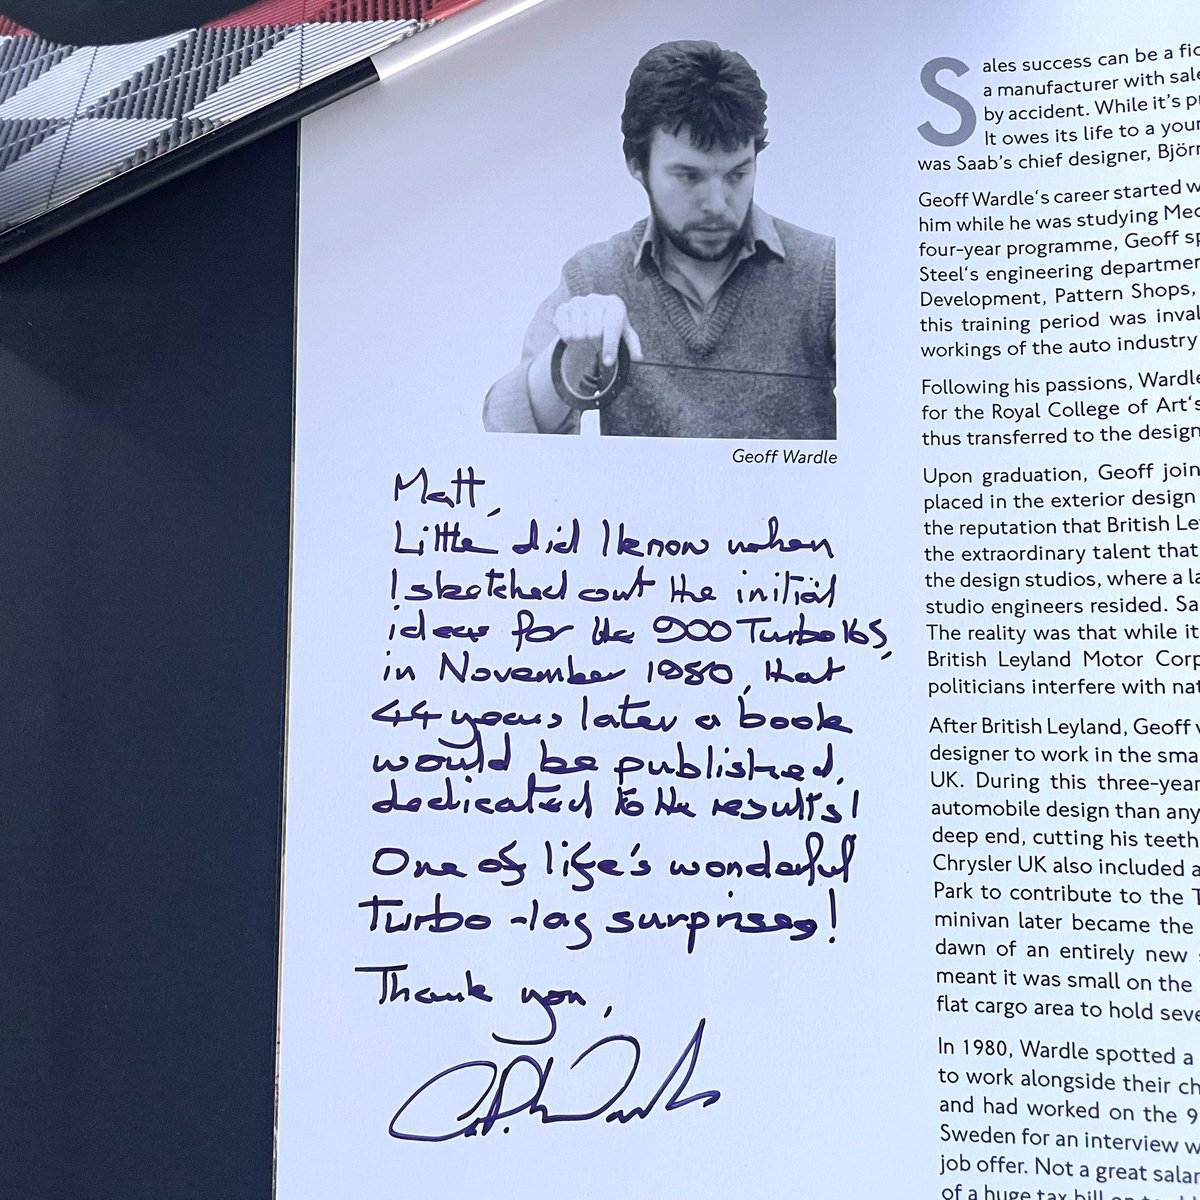 Geoff Wardle
Matt,
Little did I know when
I sketched out the initial
ideas for the 900 Turbo 16S,
in November 1980, that
44 years later a book
would be published,
dedicated to the results!
One of life's wonderful
Turbo-lag surprises!
Thank you,
Sales success can be a fic
a manufacturer with sale
by accident. While it's p
It owes its life to a you
was Saab's chief designer, Björn
Geoff Wardle's career started w
him while he was studying Mec
four-year programme, Geoff sp
Steel's engineering departmen
Development, Pattern Shops,
this training period was inval
workings of the auto industry
Following his passions, Wardle
for the Royal College of Art's
thus transferred to the design
Upon graduation, Geoff join
placed in the exterior design
the reputation that British Le
the extraordinary talent that
the design studios, where a la
studio engineers resided. Sa
The reality was that while it
British Leyland Motor Corp
politicians interfere with nat
After British Leyland, Geoff w
designer to work in the sma
UK. During this three-year
automobile design than any
deep end, cutting his teeth
Chrysler UK also included a
Park to contribute to the T
minivan later became the
dawn of an entirely new
meant it was small on the
flat cargo area to hold seve
In 1980, Wardle spotted a
to work alongside their ch
and had worked on the 9
Sweden for an interview w
job offer. Not a great salar
of a huge tax bill